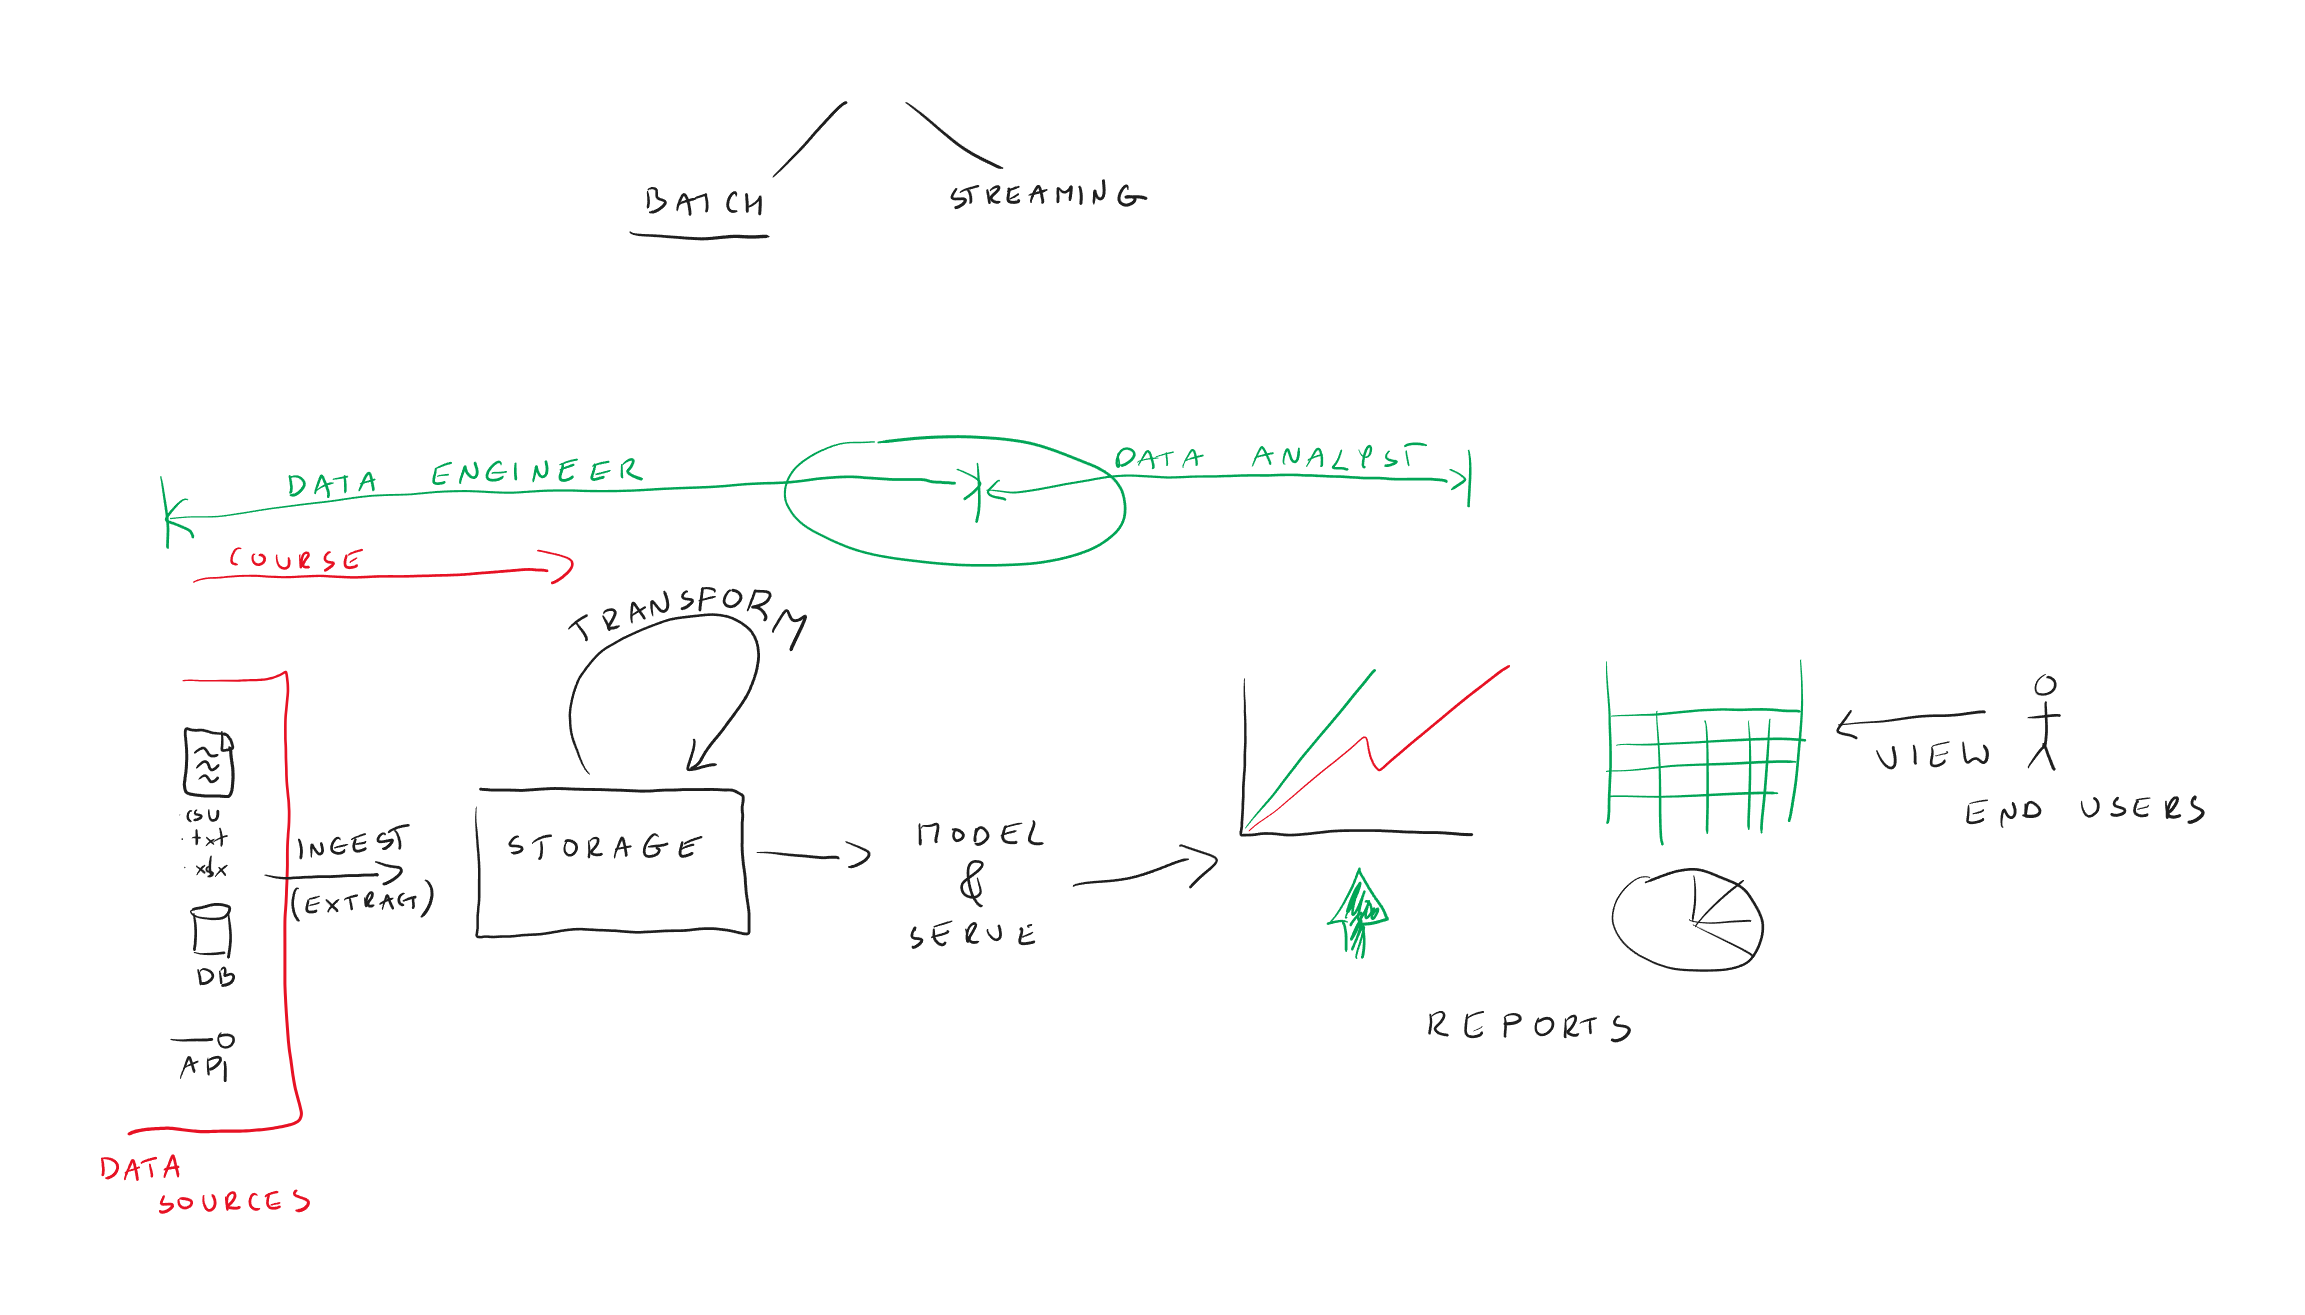 BATCH
STREAMING
DATA ENGINEER
DATA ANALYST
COURSE
TRANSFORM
csv
txt
xlsx
DB
API
DATA
SOURCES
INGEST
(EXTRACT)
STORAGE
MODEL
&
SERVE
REPORTS
VIEW
END USERS